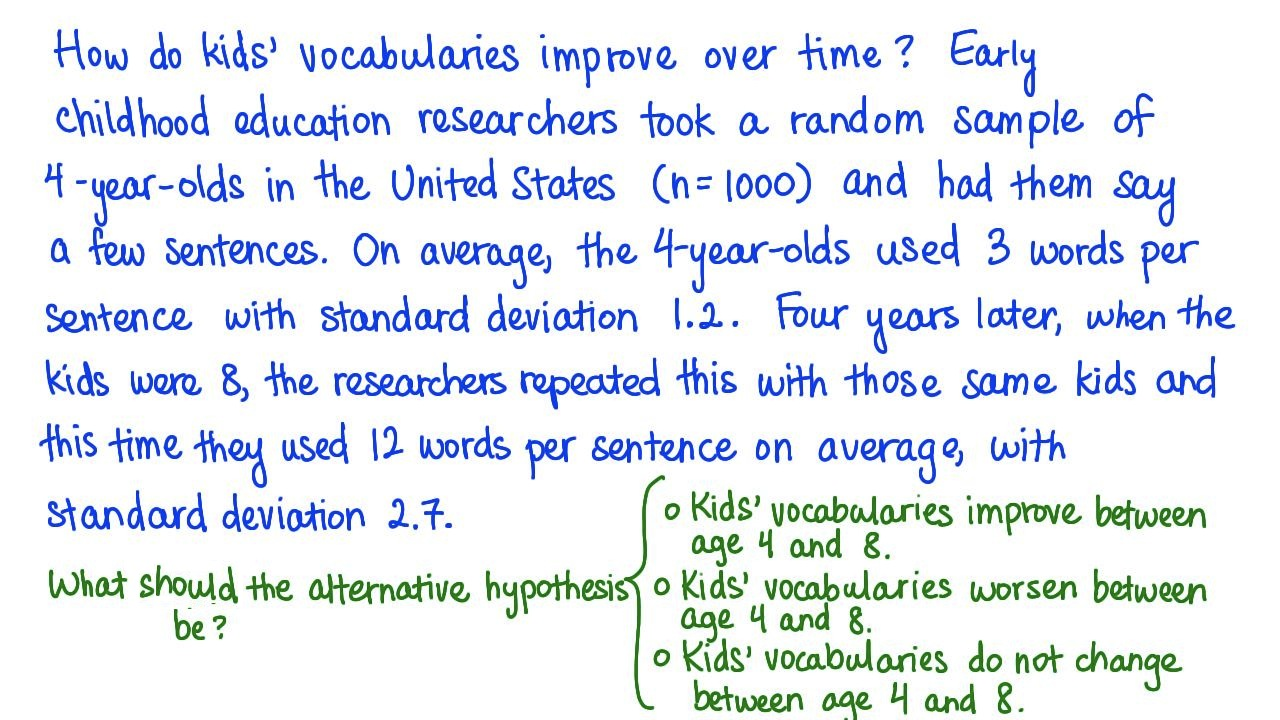 How do kids' vocabularies improve over time? Early
childhood education researchers took a random sample of
4-year-olds in the United States (n=1000) and had them say
a few sentences. On average, the 4-year-olds used 3 words per
sentence with standard deviation 1.2. Four years later, when the
kids were 8, the researchers repeated this with those same kids and
this time they used 12 words per sentence on average, with
standard deviation 2.7.
What should the alternative hypothesis
be?
o Kids' vocabularies improve between
age 4 and 8.
o Kids' vocabularies worsen between
age 4 and 8.
o Kids' vocabularies do not change
between age 4 and 8.